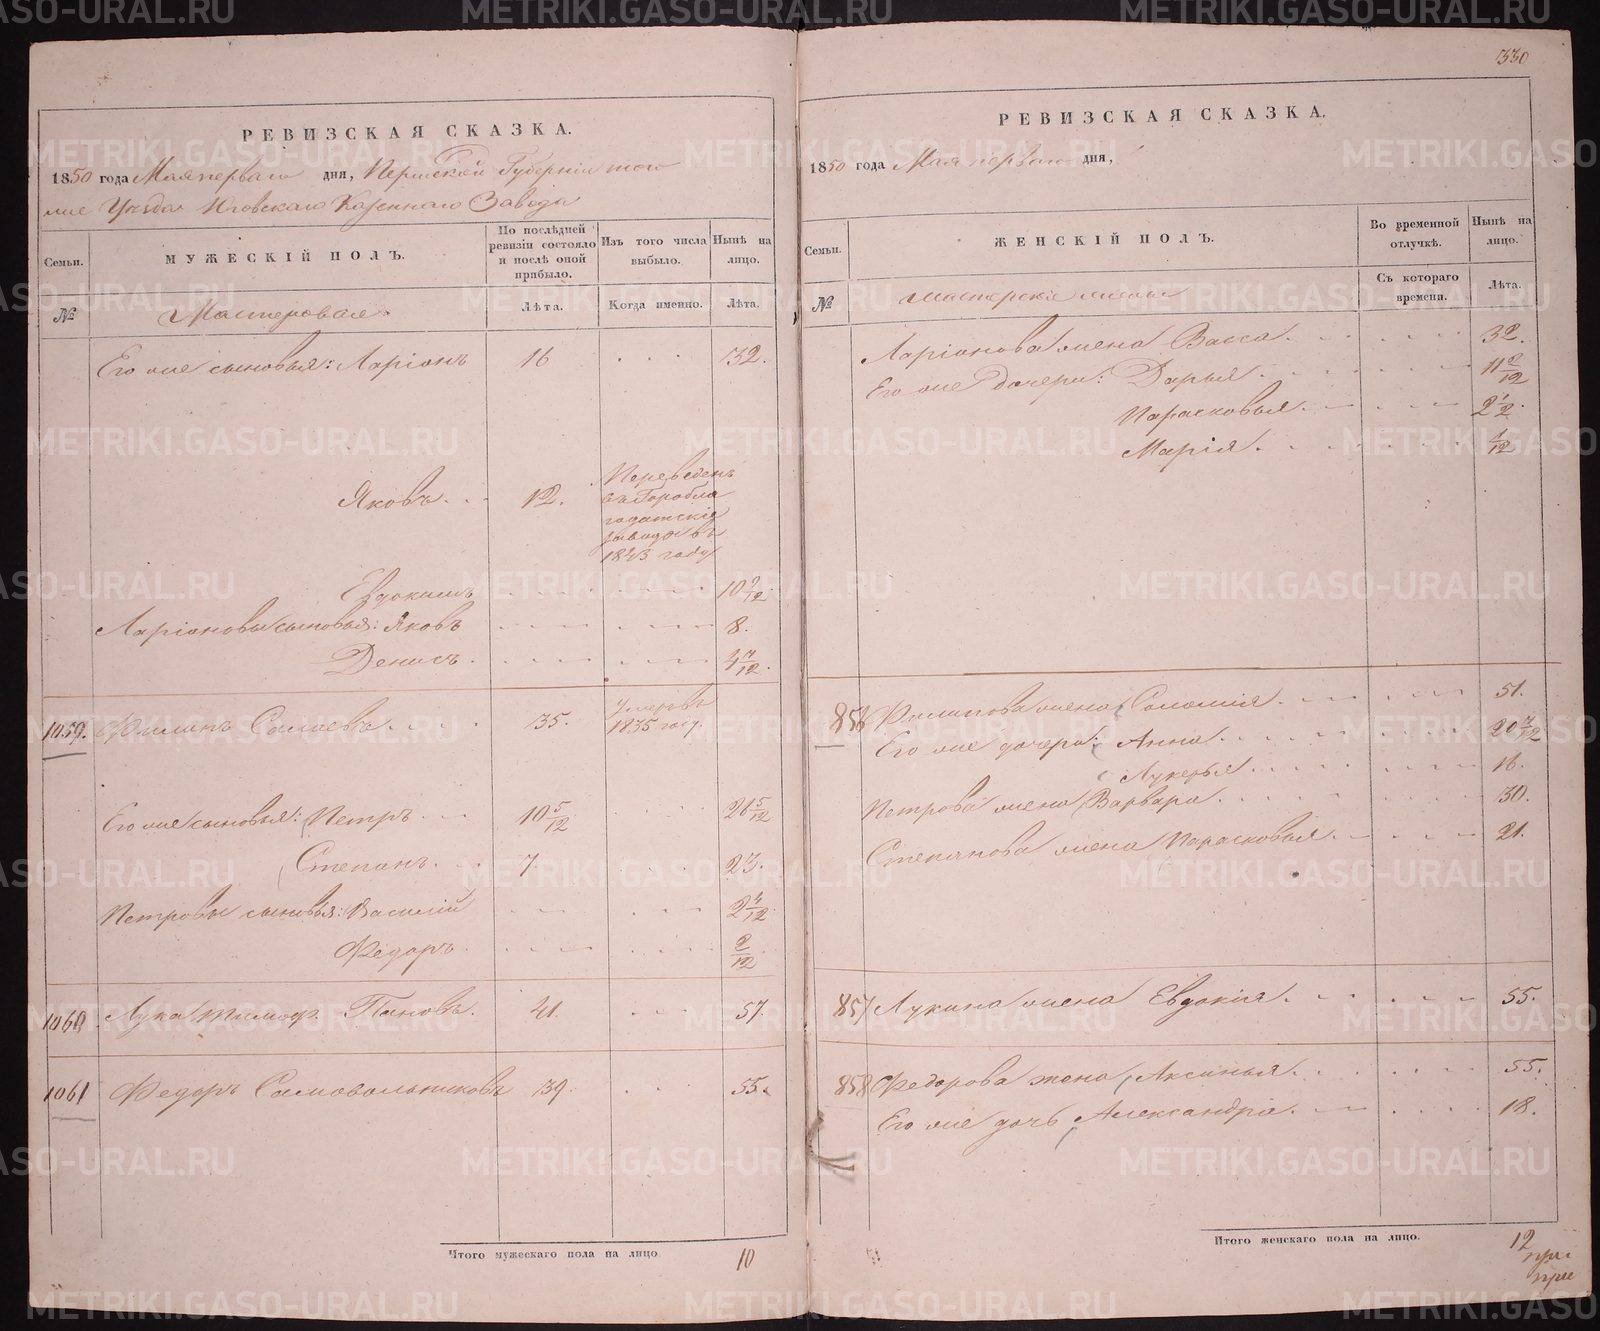 330
РЕВИЗСКАЯ СКАЗКА.
1850 года Мая перваго дня, Пермской Губернии того
же Уезда Юговскаго Казеннаго Завода
Семьи.
МУЖЕСКІЙ ПОЛЪ.
По послѣдней ревизіи состояло и послѣ оной прибыло.
Изъ того числа выбыло.
Нынѣ на лицо.
№
Мастеровая
Лѣта.
Когда именно.
Лѣта.
Его же сыновья: Ларіонъ 16 32.
Яковъ. 12. Переведенъ
въ Горобла
годатскіе
заводы въ
1843 году
Евдокимъ 10 9/12
Ларіоновы сыновья: Яковъ 8.
Денисъ. 4 7/12.
1059. Филипъ Салаевъ. 35. Умеръ въ
1835 году.
Его же сыновья: Петръ. 10 5/12 26 5/12
Степанъ. 7 23.
Петровы сыновья: Василій 2 4/12
Федоръ. 2/12
1060. Лука Тимоф. Пановъ. 41. 57.
1061 Федоръ Самовольниковъ 39. 55.
Итого мужескаго пола на лицо 10
РЕВИЗСКАЯ СКАЗКА.
1850 года Мая перваго дня,
Семьи.
ЖЕНСКІЙ ПОЛЪ.
Во временной отлучкѣ.
Нынѣ на лицо.
№
мастерскіе жены
Съ котораго времени.
Лѣта.
Ларіонова жена Васса. 32.
Его же дочери: Дарья. 11 2/12
Парасковья. 2 1/2.
Марія. 1/12
856 Филипова жена Соломія 51.
Его же дочери: Анна. 20 7/12
Лукерья 16.
Петрова жена Варвара. 30.
Степанова жена Парасковья. 21.
857 Лукина жена Евдокія. 55.
858 Федорова жена Аксинья. 55.
Его же дочь Александра. 18.
Итого женскаго пола на лицо. 12